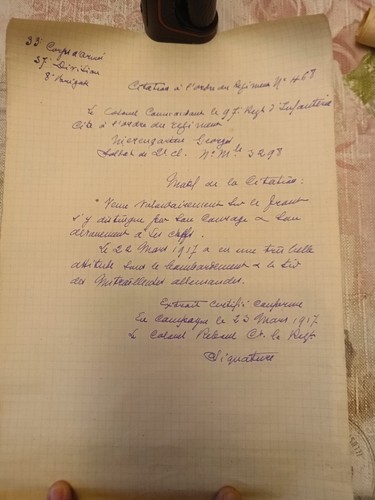 35 Corps d'Armée
37e Division
8e Brigade
Citation à l'ordre du Régiment No 468
Le Colonel Commandant le 97 Regt d'Infanterie
Cite à l'ordre du régiment
Georges
Soldat de 2e cl. No Mle 3298
Motif de la Citation:
"Venu volontairement sur le front
s'y distingue par son courage & son
dévouement à ses chefs.
Le 22 Mars 1917 a eu une très belle
attitude sous le bombardement & le tir
des Mitrailleuses allemandes.
Extrait certifié conforme
En Campagne le 23 Mars 1917.
Le Colonel Ct. le Regt
Signature